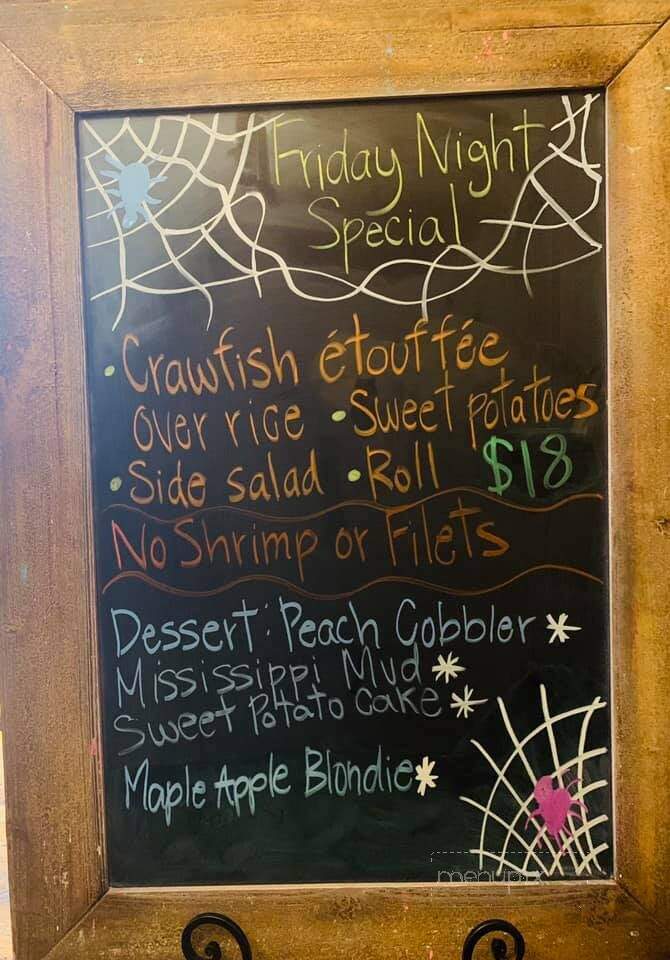 Friday Night
Special
• Crawfish étouffée
over rice • Sweet potatoes
• Side salad • Roll $18
No Shrimp or Filets
Dessert: Peach Cobbler *
Mississippi Mud *
Sweet Potato Cake *
Maple Apple Blondie *
menupix